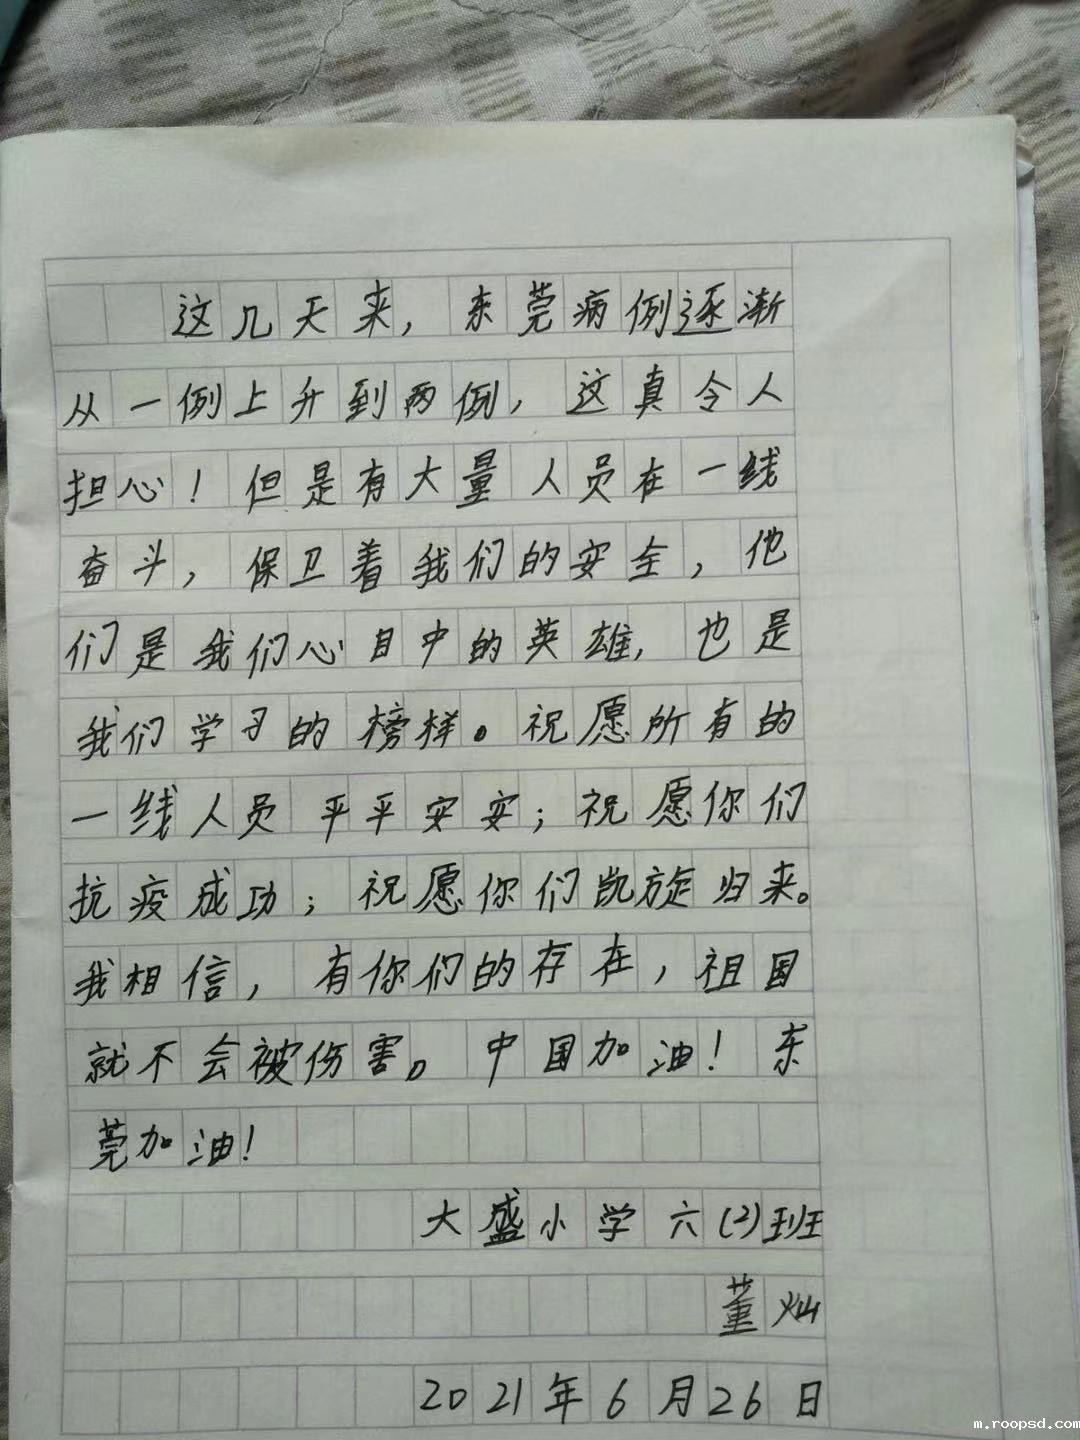 这几天来，东莞病例逐渐
从一例上升到两例，这真令人
担心！但是有大量人员在一线
奋斗，保卫着我们的安全，他
们是我们心目中的英雄，也是
我们学习的榜样。祝愿所有的
一线人员平平安安；祝愿你们
抗疫成功；祝愿你们凯旋归来。
我相信，有你们的存在，祖国
就不会被伤害。中国加油！东
莞加油！
大盛小学六(2)班
董灿
2021年6月26日
m.roopsd.com